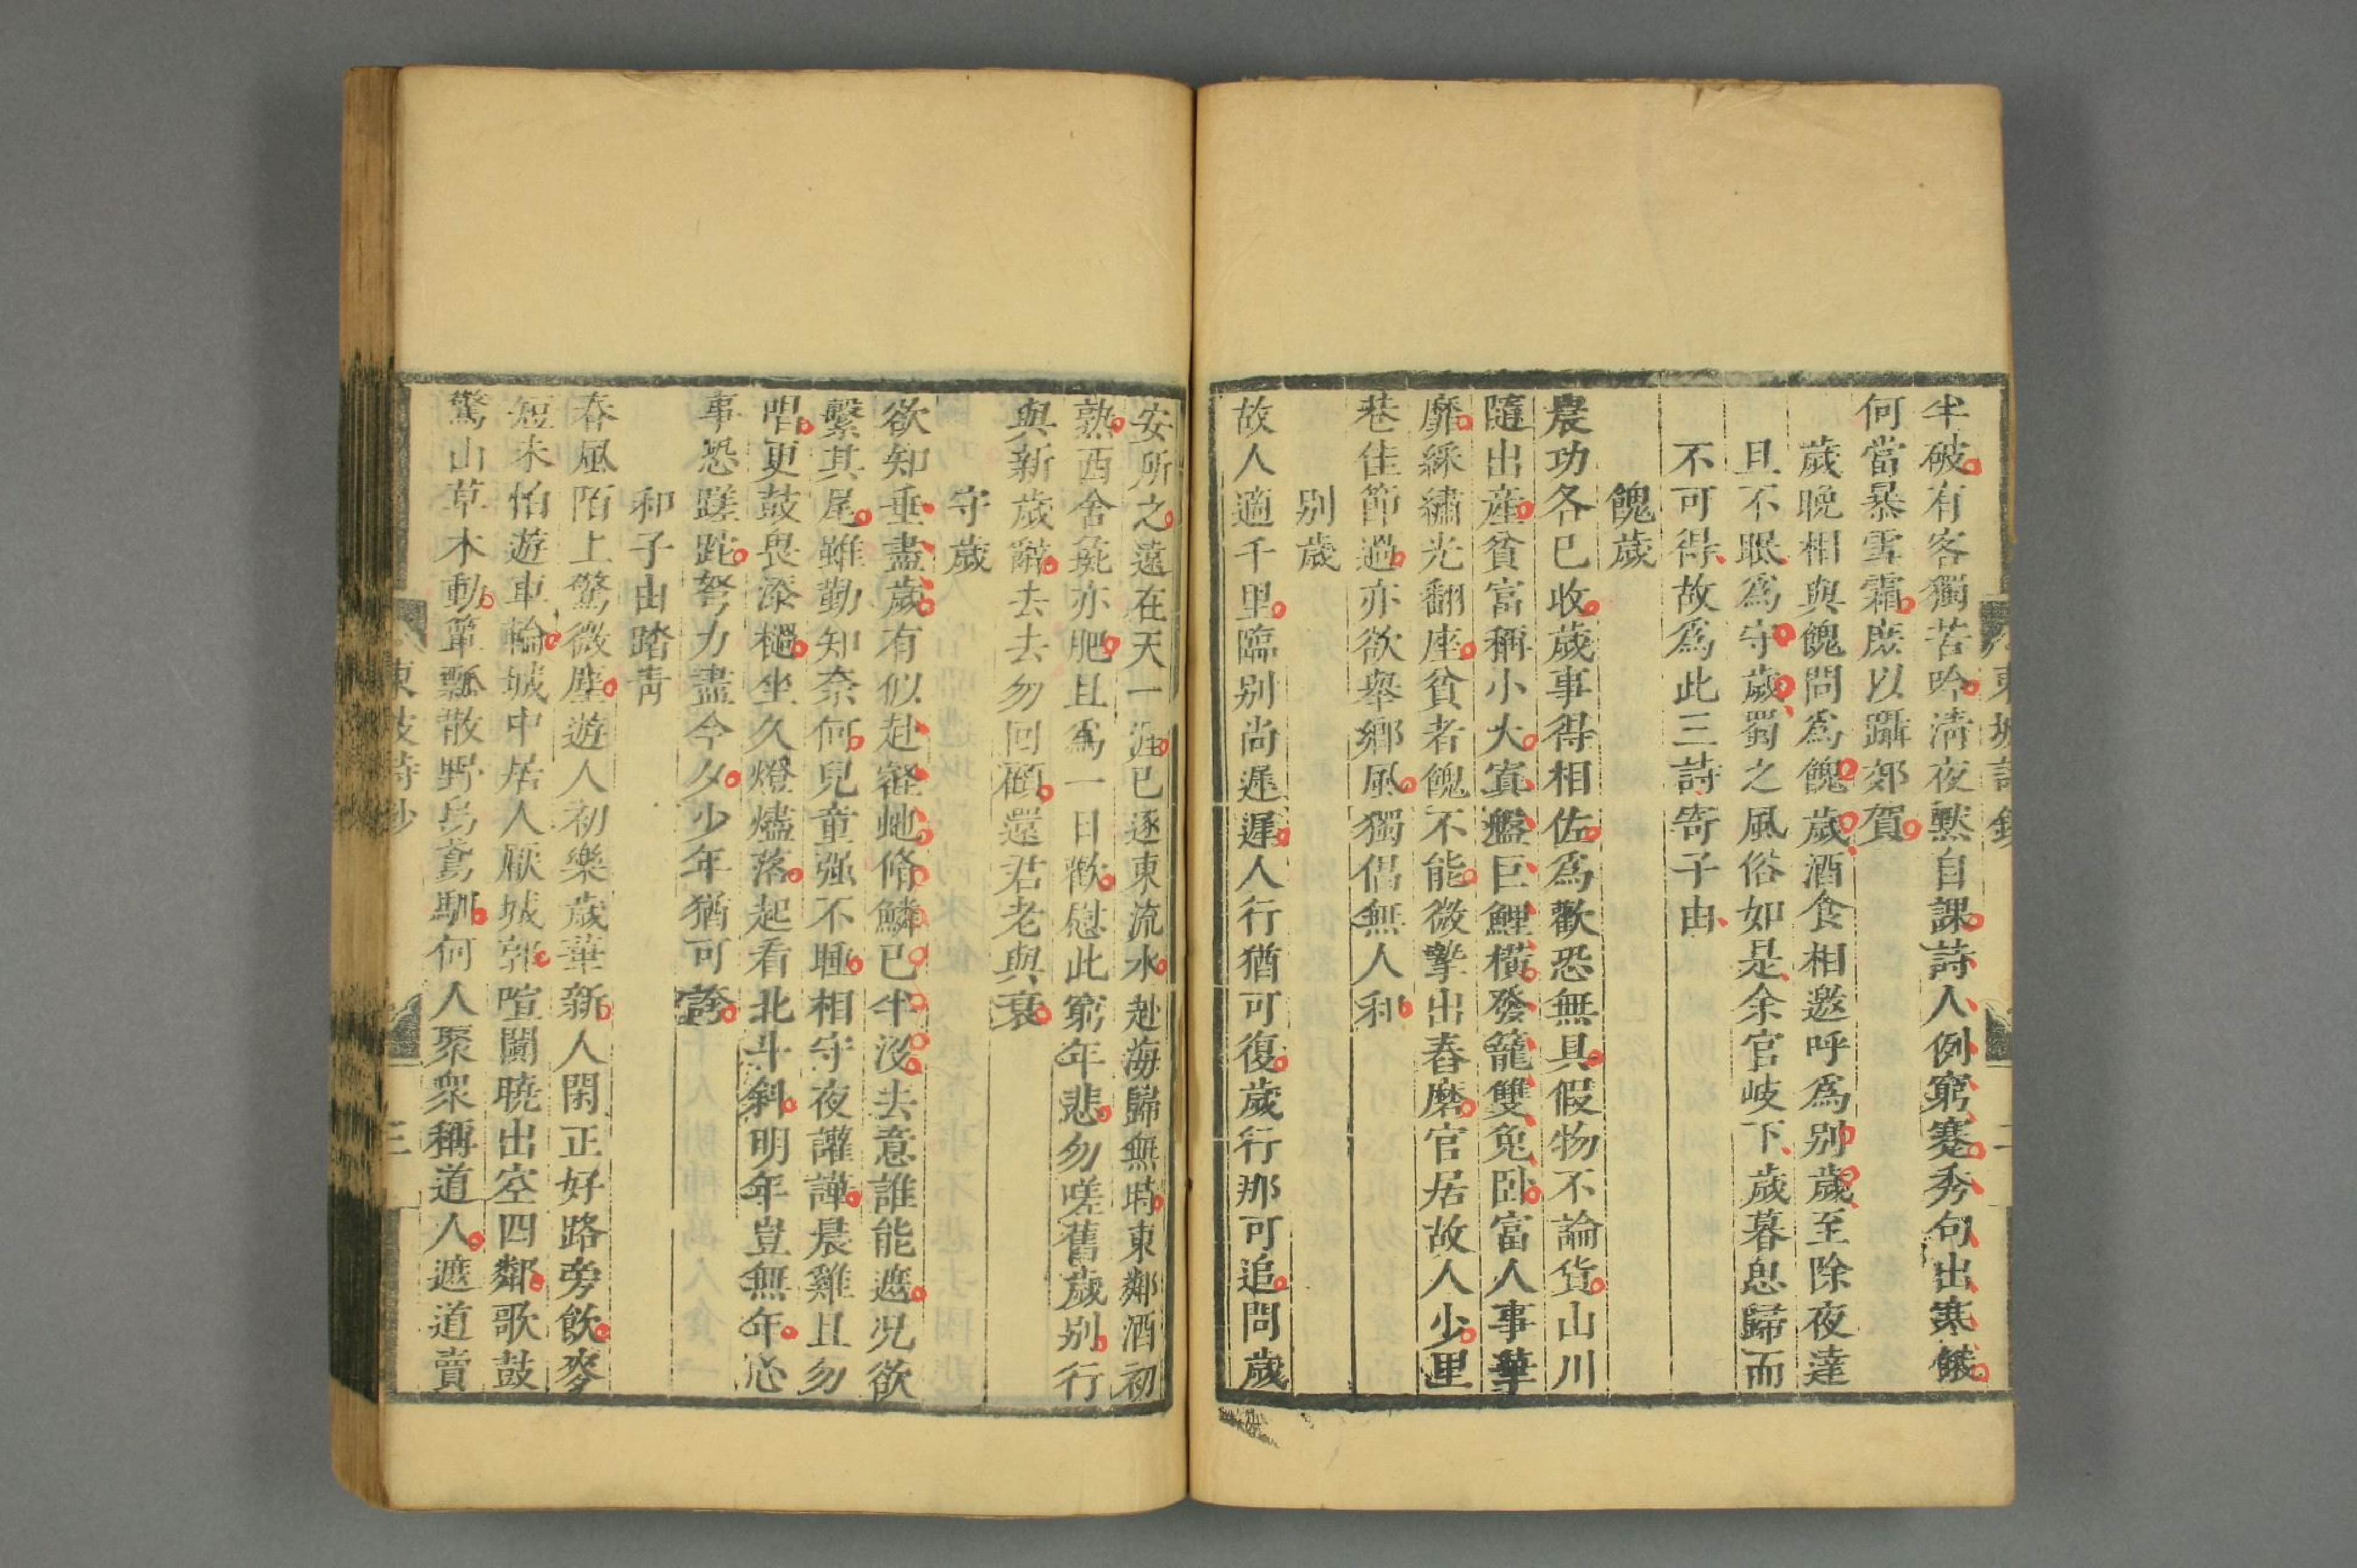 半破有客獨苦吟清夜默自課詩人例窮蹇秀句出寒餓
何當暴雪霜庶以躡郊賀
歲晚相與餽問爲餽歲酒食相邀呼爲别歲至除夜達
旦不眠爲守歲蜀之風俗如是余官岐下歲暮思歸而
不可得故爲此三詩寄子由
餽歲
農功各已收歲事得相佐爲歡恐無具假物不論貨山川
隨出産貧富稱小大寘盤巨鯉橫發籠雙兔卧富人事華
靡綵繡光翻座貧者餽不能微摯出舂磨官居故人少里
巷佳節過亦欲舉鄉風獨倡無人和
别歲
故人適千里臨别尚遲遲人行猶可復歲行那可追問歲
安所之遠在天一涯已逐東流水赴海歸無時東鄰酒初
熟西舍彘亦肥且爲一日歡慰此窮年悲勿嗟舊歲别行
與新歲辭去去勿回顧還君老與衰
守歲
欲知垂盡歲有似赴壑虵脩鱗已半没去意誰能遮况欲
繫其尾雖勤知奈何兒童强不睡相守夜讙譁晨雞且勿
唱更鼓畏添檛坐久燈燼落起看北斗斜明年豈無年心
事恐蹉跎努力盡今夕少年猶可誇
和子由踏青
春風陌上驚微塵遊人初樂歲華新人閑正好路旁飲麥
短未怕遊車輪城中居人厭城郭喧闐曉出空四鄰歌鼓
驚山草木動簞瓢散野烏鳶馴何人聚衆稱道人遮道賣
東坡詩鈔
三